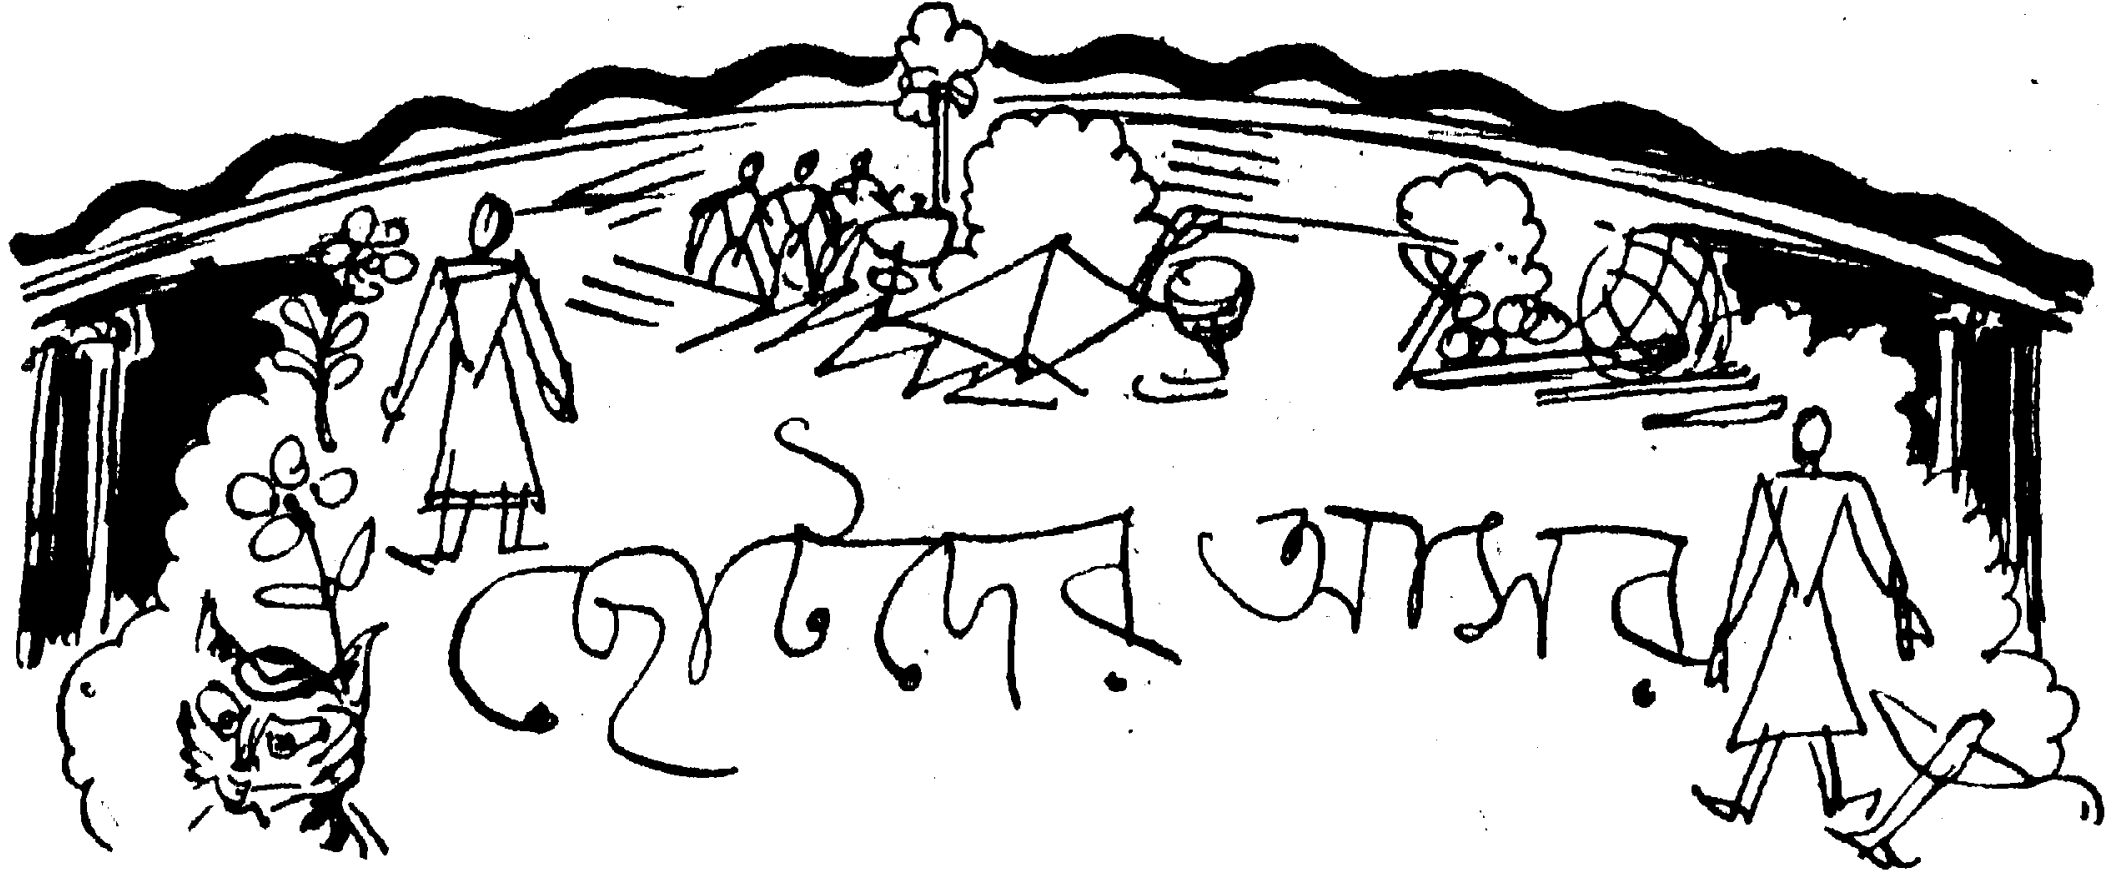 ছোটদের আসর